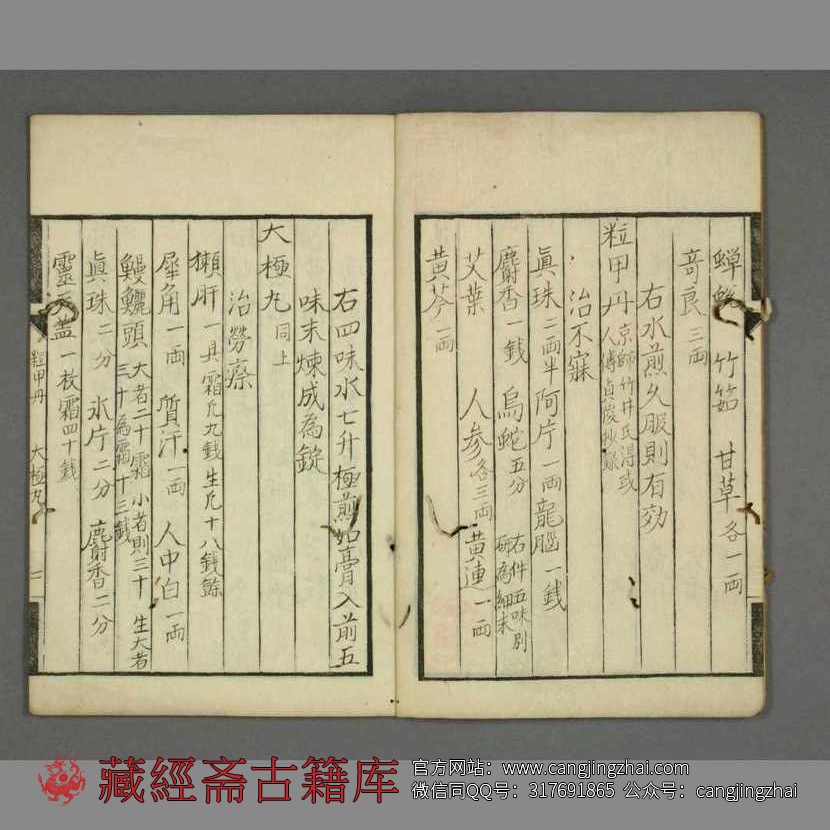 蟬蛻 竹茹 甘草各一両
奇良三両
右水煎久服則有効
粒甲丹京師竹井氏得或人傳貞俊抄録
治不寐
真珠二両半 阿片一両 龍腦一銭
麝香一銭 烏蛇五分 右件五味別研為細末
艾葉 人参各三両 黄連一両
黄芩一両
右四味水七升極煎如膏入前五
味末煉成為錠
大極丸同上
治勞瘵
獺肝一具霜凡九銭生凡十八銭餘
犀角一両 質汗一両 人中白一両
鰻鱺頭大者二十霜小者則三十生大者三十為霜十三銭
真珠二分 氷片二分 麝香二分
靈天蓋一枚霜四十銭
粒甲丹 大極丸
藏經斋古籍库
官方网站：www.cangjingzhai.com
微信同QQ号：317691865 公众号：cangjingzhai